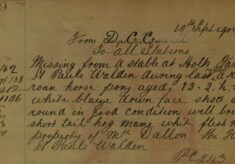 10th Sept 190
From D. C. C.
To all Stations
Missing from a stable at Holly
St Pauls Walden during last a
roan horse pony aged, 13.2.h
white blaize down face shod a
round in Good condition well br
short tail hog mane white flesh
property of Mr Dalton The H
St Pauls Walden
P.C 213